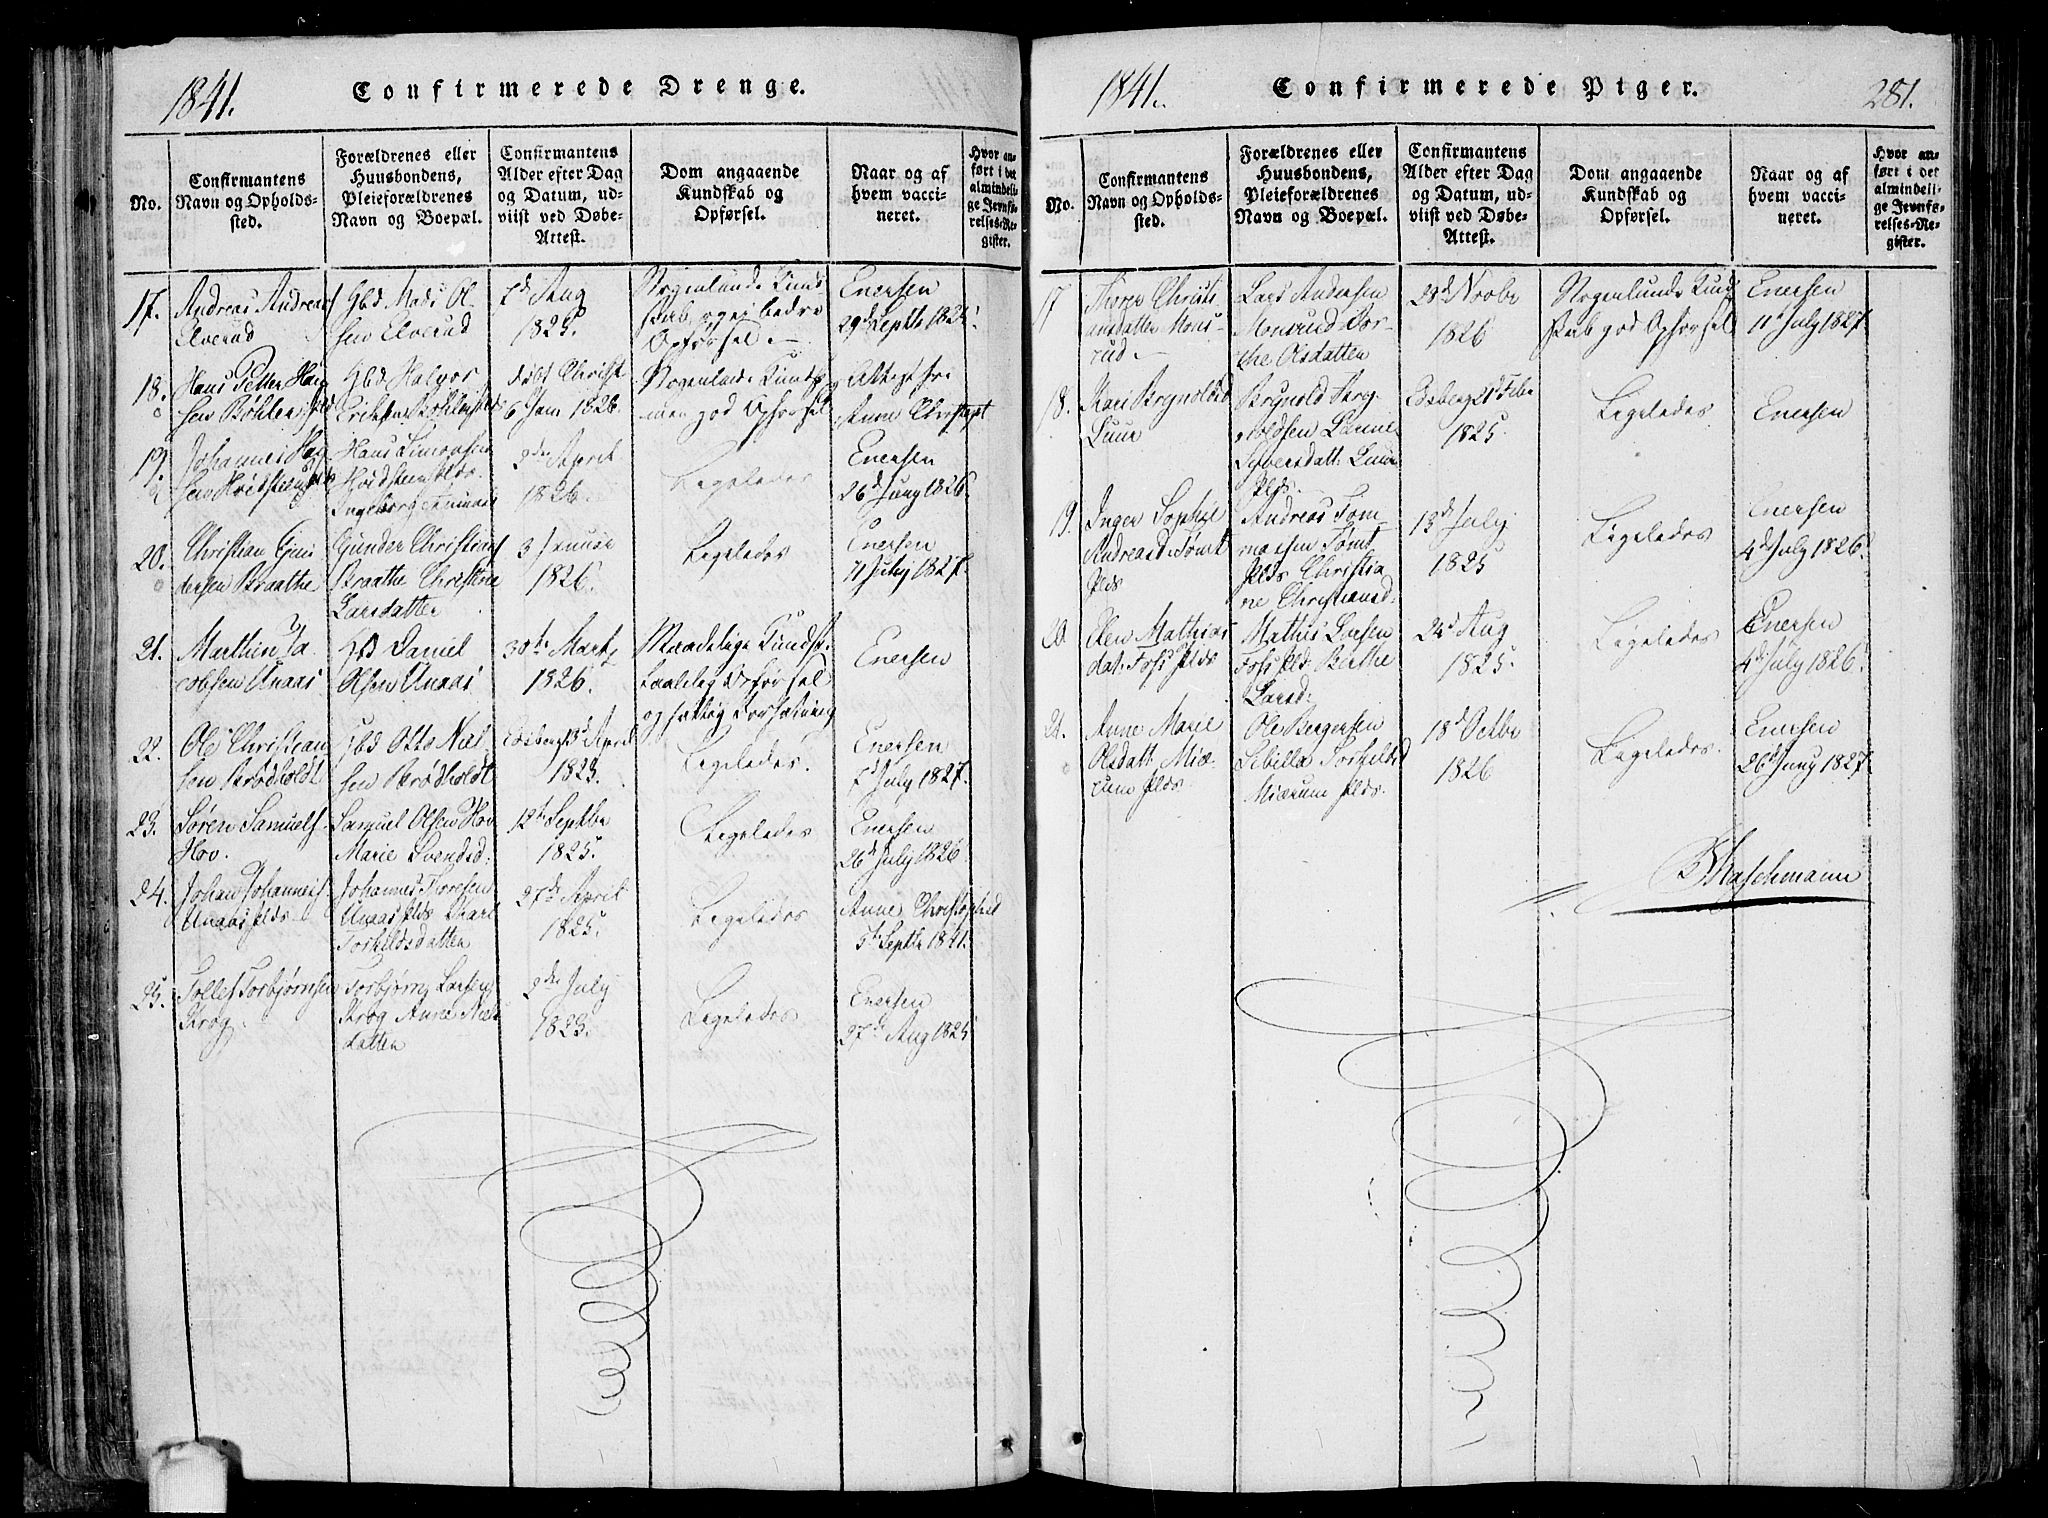 1841.
Confirmerede Drenge.
No.
Confirmantens
Navn og Opholds-
sted.
Forældrenes eller
Huusbondens,
Pleieforældrenes
Navn og Boepæl.
Confirmantens
Alder efter Dag
og Datum, ud-
viist ved Døbe-
Attest.
Dom angaaende
Kundskab og
Opførsel.
Naar og af
hvem vacci-
neret.
Hvor an-
ført i det
almindeli-
ge Jevnfø-
relses-Re-
gister.
17.
Andreas Andreas
Elverud
Gbd Mads Ol
sen Elverud
7d Aug
1825
Nogenlunde Kund
skab og ei bedre
Opførsel.-
Enersen
29d Septb 1825.
18.
Hans Petter Han
sen
Gbd Halvor
døbt Christ
6 Jan 1826.
Nogenlunde Kundsk
men god Opførsel
Attest fra
Anne Christoph
19.
Johannes Han
sen
Hans Simonsen
Ingeborg
2den April
1826.
Ligeledes
Enersen
26d Juny 1826
20.
Christian Gun
dersen Braathe
Gunder Christians
Braathe Christine
Larsdatter
3 Januar
1826.
Ligeledes
Enersen
11 July 1827.
21.
Marthin Ja
cobsen Unaas
Gbd Daniel
Olsen Unaas
30te Marts
1826.
Maadelige Kundsk.
taalelig Opførsel
og
Enersen
22.
Ole Christian
sen Brødholdt
Gbd Otto Niel
sen Brødholdt
Edsberg 13d April
1823.
Ligeledes.
Enersen
7d July 1827.
23.
Søren Samuels
Hov.
Samuel Olsen Hov
Marie Svendsd:
12te Septbr
1825.
Ligeledes
Enersen
26d July 1826
24.
Johan Johannes
Unaas plds
Johannes Thoresen
Unaas plds Kari
Torkildsdatten
27de April
1825.
Ligeledes
Anne Christophd
5te Septbr 1841.
25.
Tollef Torbjørnsen
Krog.
Torbjørn Larsen
Krog Anne Niels
datten
2den July
1823.
Ligeledes
Enersen
27de Aug 1825
1841.
Confirmerede Piger.
281.
No.
Confirmantens
Navn og Opholds-
sted.
Forældrenes eller
Huusbondens,
Pleieforældrenes
Navn og Boepæl.
Confirmantens
Alder efter Dag
og Datum, ud-
viist ved Døbe-
Attest.
Dom angaaende
Kundskab og
Opførsel.
Naar og af
hvem vacci-
neret.
Hvor an-
ført i det
almindeli-
ge Jevnfø-
relses-Re-
gister.
17
Christi
ansdatter Mons
rud.-
Lars Andersen
Monsrud Dor-
the Olsdatten
28d Novbr
1826
Nogenlunde Kund
skab god Opførsel
Enersen
11te July 1827.
18.
Kari Brynolds
Luur
Brynold Bryn
oldsen
Syversdatt: Luur
plds.
Edsberg 21d Febr
1825.
Ligeledes
Enersen
19.
Inger Sophie
Andreasd: Tømt
plds
Andreas Tom
masen Tømt
plds Christia
ne Christiansd:
13d July
1825
Ligeledes
Enersen
4d July 1826.
20.
Elen Mathias
dat. Foss plds
Mathis Larsen
Foss plds Birthe
Larsd:
24d Aug
1825.
Ligeledes
Enersen
4d July 1826.
21.
Anne Marie
Olsdatt. Miæ-
rum plds.
Ole Bergersen
Sibilla Torkildsd
Miærum plds.
18d Octbr
1826
Ligeledes.
Enersen
26d Juny 1827.
Maschmann